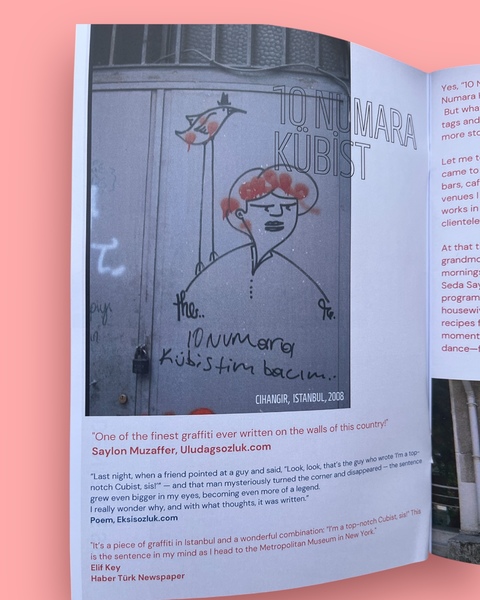 10 NUMARA
KÜBİST
the..
10 numara
Kübistim bacım..
CIHANGIR, ISTANBUL, 2008
"One of the finest graffiti ever written on the walls of this country!"
Saylon Muzaffer, Uludagsozluk.com
"Last night, when a friend pointed at a guy and said, "Look, look, that's the guy who wrote 'I'm a top-
notch Cubist, sis!'" — and that man mysteriously turned the corner and disappeared — the sentence
grew even bigger in my eyes, becoming even more of a legend.
I really wonder why, and with what thoughts, it was written."
Poem, Eksisozluk.com
"It's a piece of graffiti in Istanbul and a wonderful combination: "I'm a top-notch Cubist, sis!" This
is the sentence in my mind as I head to the Metropolitan Museum in New York."
Elif Key
Haber Türk Newspaper
Yes, "10 N
Numara
But wha
tags and
more sto
Let me t
came to
bars, caf
venues I
works in
clientele
At that t
grandmo
morning
Seda Say
program
housewi
recipes f
moment
dance—t